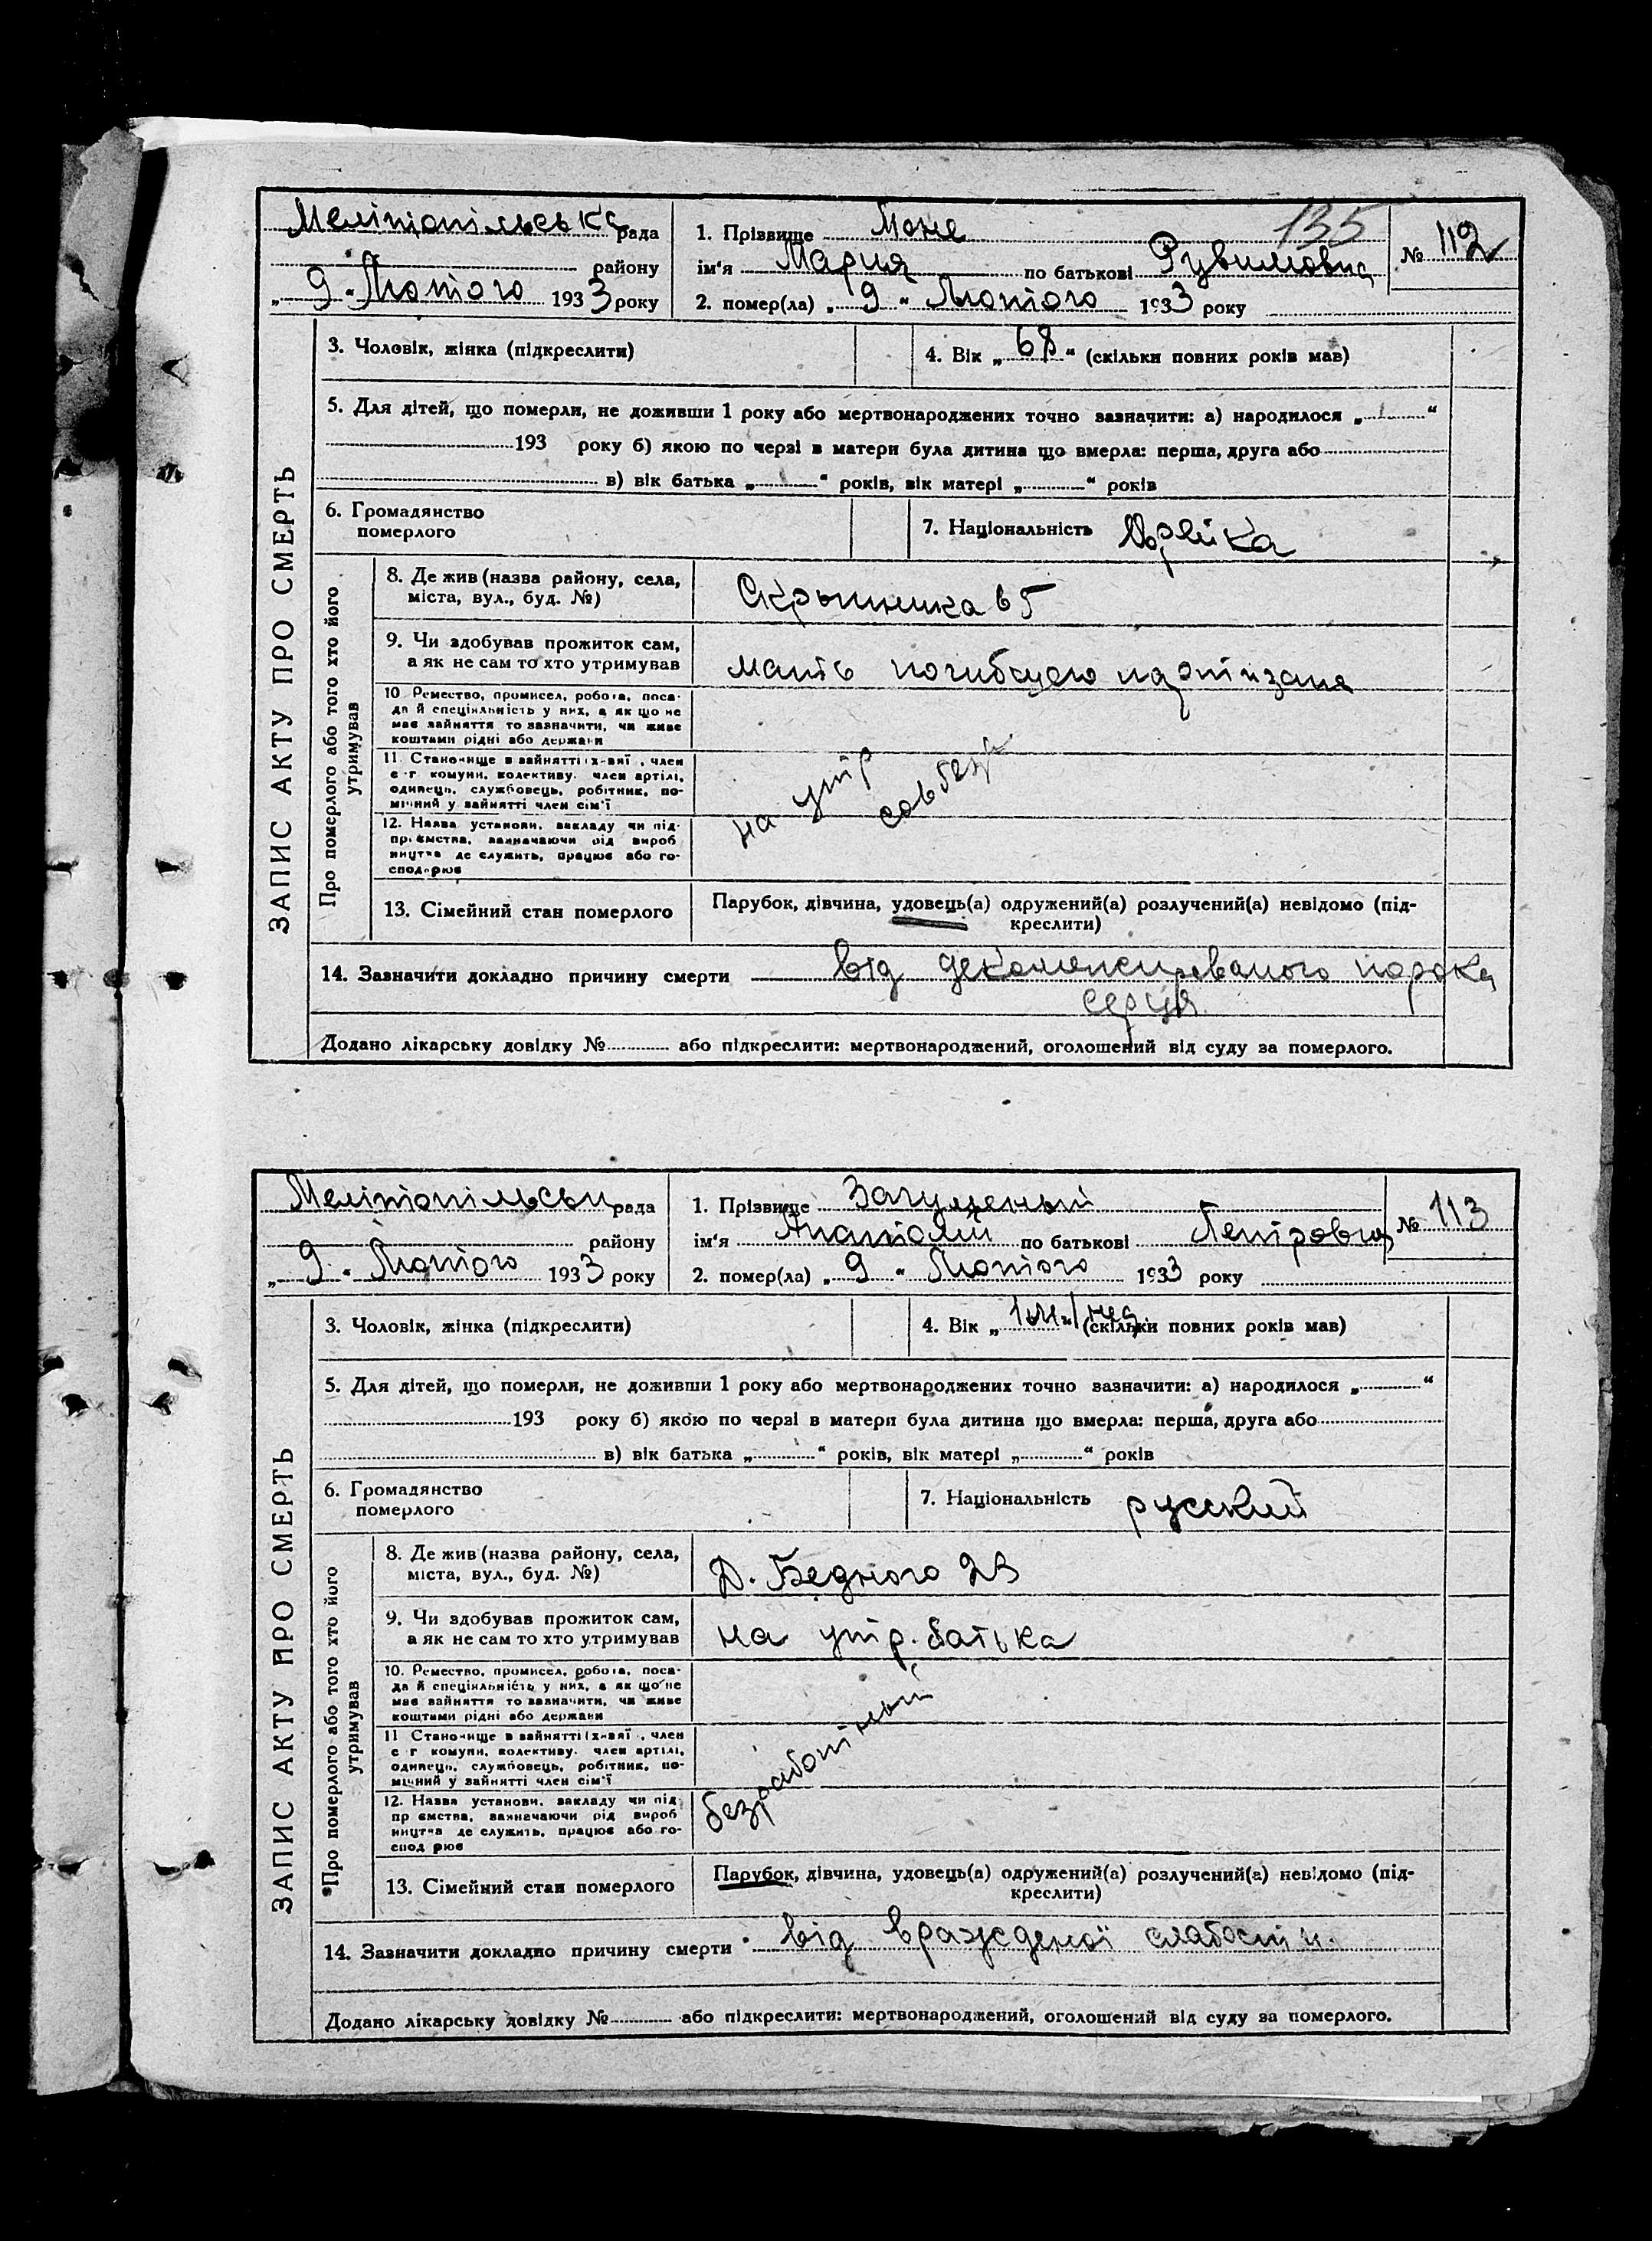 135
Мелітопільська рада
району
„ 9 " Лютого 1933 року
1. Прізвище Моне
ім'я Мария по батькові Рувимовна
№ 112
2. помер(ла) „ 9 " Лютого 1933 року
ЗАПИС АКТУ ПРО СМЕРТЬ
3. Чоловік, жінка (підкреслити)
4. Вік „ 68 " (скільки повних років мав)
5. Для дітей, що померли, не доживши 1 року або мертвонароджених точно зазначити: а) народилося „ "
193 року б) якою по черзі в матери була дитина що вмерла: перша, друга або
в) вік батька „ " років, вік матері „ " років
6. Громадянство
померлого
7. Національність
Про померлого або того хто його
утримував
8. Де жив (назва району, села,
міста, вул., буд. №)
Скрыпника 65
9. Чи здобував прожиток сам,
а як не сам то хто утримував
мать погибшого партизана
10. Ремество, промисел, робота, поса-
да й спеціяльність у них, а як що не
має зайняття то зазначити, чи живе
коштами рідні або держави
11. Становище в зайнятті (х-вяї, член
с-г комуни, колективу, член артілі,
одинець, службовець, робітник, по-
мічний у зайнятті член сім'ї
на утр
12. Назва установи, закладу чи під-
приємства, зазначаючи рід вироб
ництва де служить, працює або го-
сподарює
13. Сімейний стан померлого
Парубок, дівчина, удовець(а) одружений(а) розлучений(а) невідомо (під-
креслити)
14. Зазначити докладно причину смерти від декомпенсированого порока
серця
Додано лікарську довідку № або підкреслити: мертвонароджений, оголошений від суду за померлого.
Мелітопільськ рада
району
„ 9 " Лютого 1933 року
1. Прізвище Загуменый
ім'я Анатолий по батькові Петрович
№ 113
2. помер(ла) „ 9 " Лютого 1933 року
ЗАПИС АКТУ ПРО СМЕРТЬ
3. Чоловік, жінка (підкреслити)
4. Вік „ 1 м. 1 нед. " (скільки повних років мав)
5. Для дітей, що померли, не доживши 1 року або мертвонароджених точно зазначити: а) народилося „ "
193 року б) якою по черзі в матери була дитина що вмерла: перша, друга або
в) вік батька „ " років, вік матері „ " років
6. Громадянство
померлого
7. Національність русский
Про померлого або того хто його
утримував
8. Де жив (назва району, села,
міста, вул., буд. №)
Д. Бедного 23
9. Чи здобував прожиток сам,
а як не сам то хто утримував
на утр. батька
10. Ремество, промисел, робота, поса-
да й спеціяльність у них, а як що не
має зайняття то зазначити, чи живе
коштами рідні або держави
11 Становище в зайнятті (х-вяї, член
с-г комуни, колективу, член артілі,
одинець, службовець, робітник, по-
мічний у зайнятті член сім'ї
безработный
12. Назва установи, закладу чи під-
приємства, зазначаючи рід вироб
ництва де служить, працює або го-
сподарює
13. Сімейний стан померлого
Парубок, дівчина, удовець(а) одружений(а) розлучений(а) невідомо (під-
креслити)
14. Зазначити докладно причину смерти від врожденої слабости.
Додано лікарську довідку № або підкреслити: мертвонароджений, оголошений від суду за померлого.